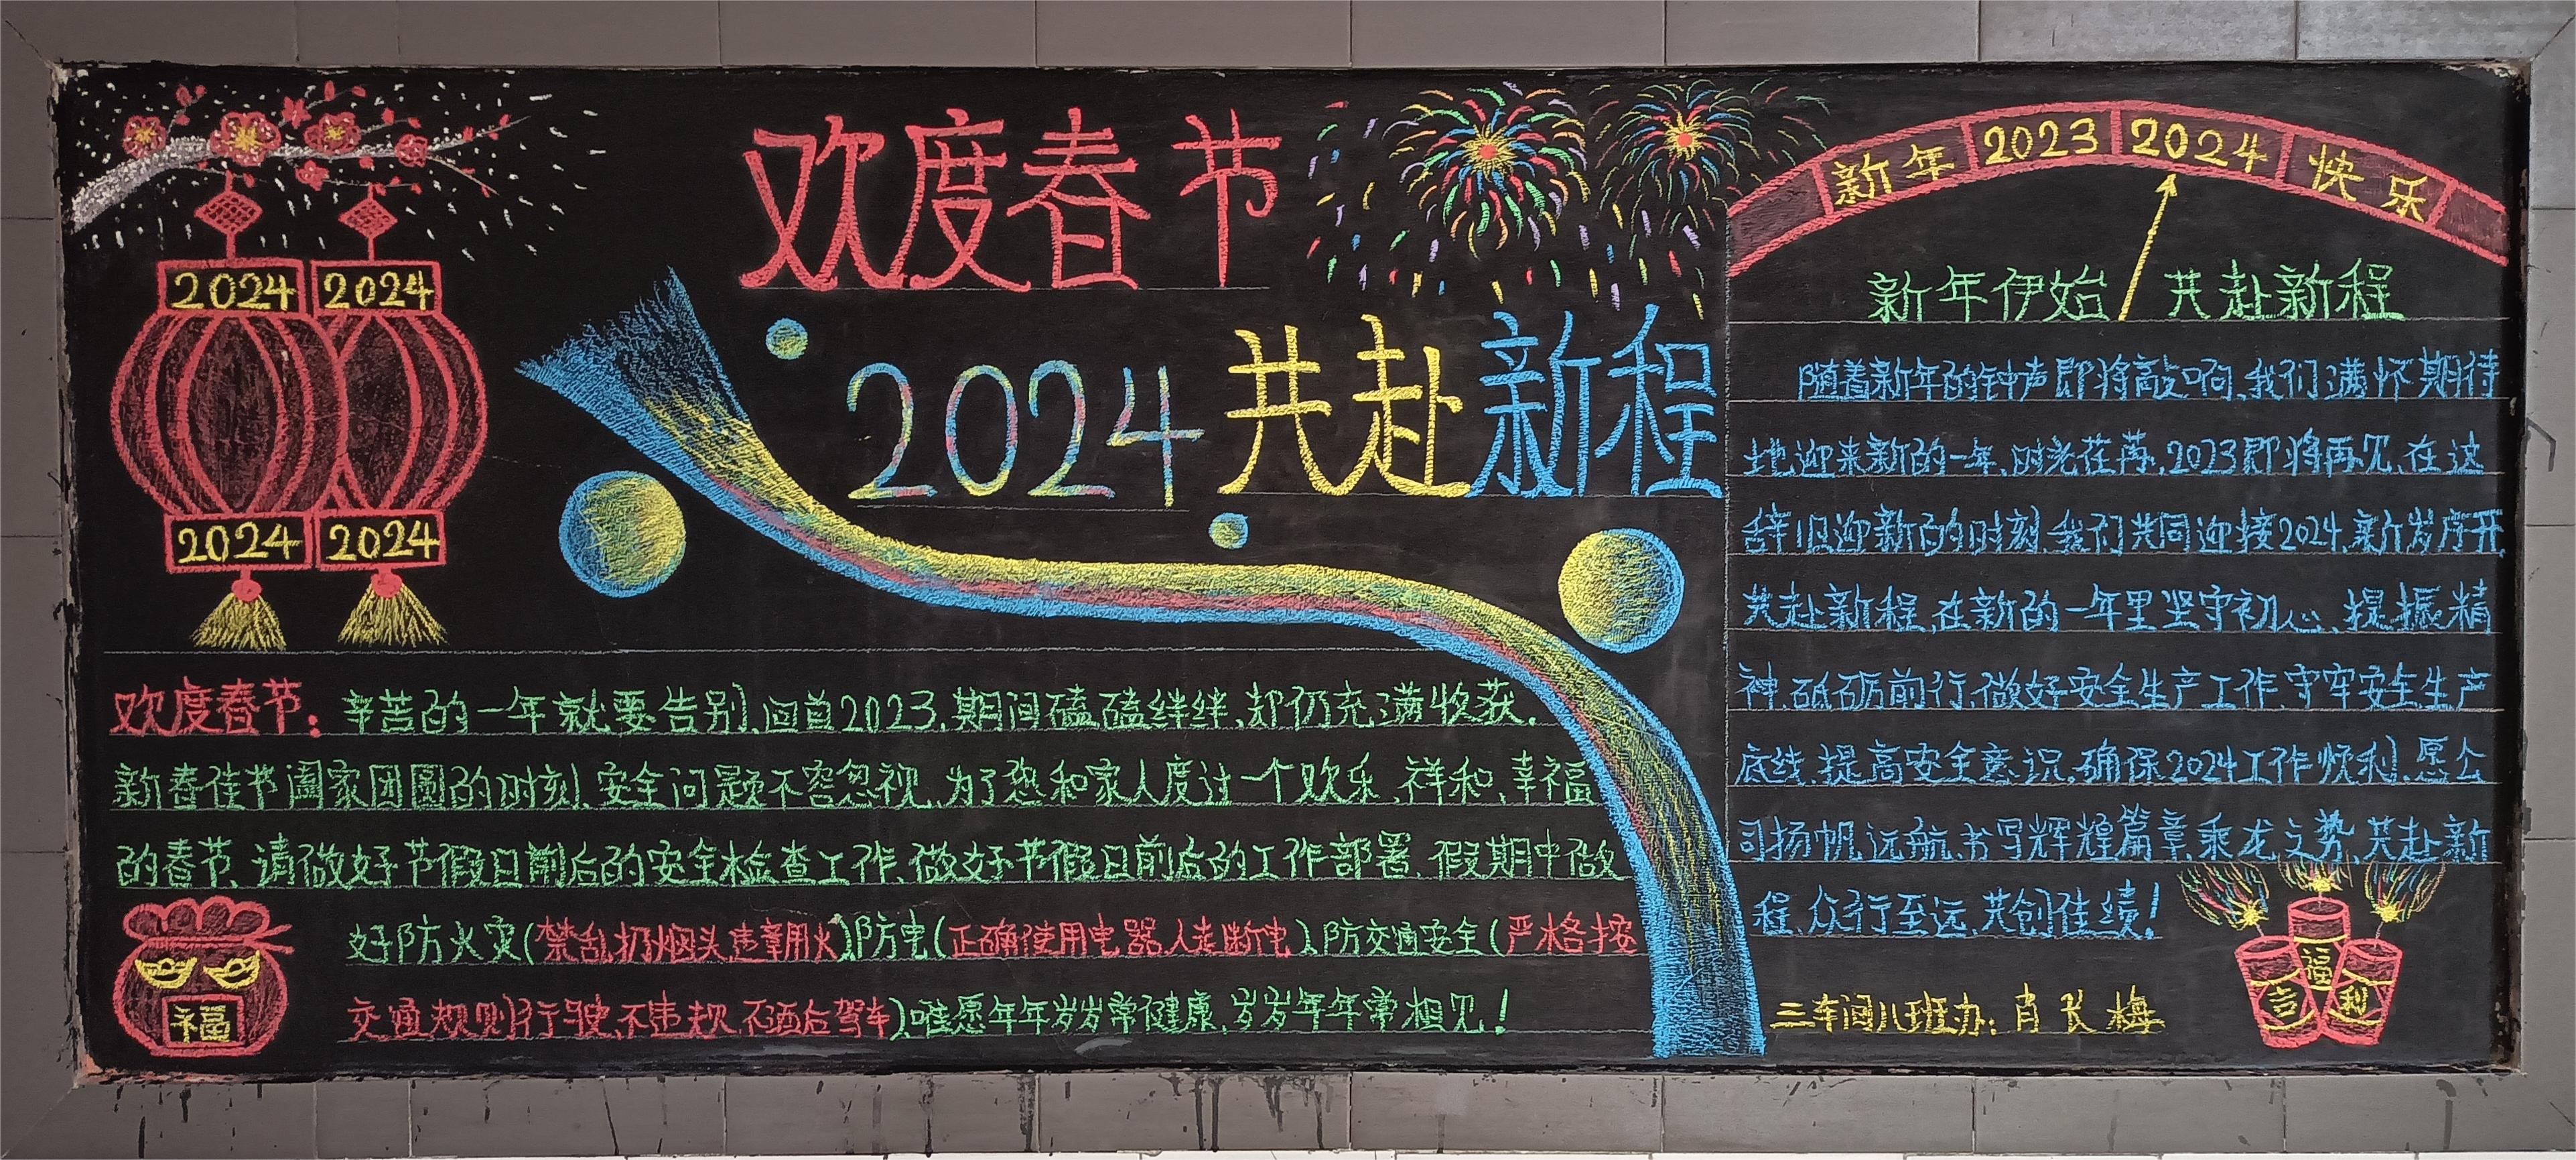 欢度春节
2024共赴新程
2024 2024
2024 2024
欢度春节：辛苦的一年就要告别,回首2023,期间磕磕绊绊、却仍充满收获.
新春佳节阖家团圆的时刻,安全问题不容忽视,为了您和家人度过一个欢乐、祥和,幸福
的春节、请做好节假日前后的安全检查工作、做好节假日前后的工作部署、假期中做
好防火灾(禁乱扔烟头违章用火)、防电(正确使用电器人走断电)、防交通安全(严格按
交通规则行驶,不违规,不酒后驾车)、唯愿年年岁岁常健康,岁岁年年常相见!
福
新年 2023 2024 快乐
新年伊始 共赴新程
随着新年的钟声即将敲响,我们满怀期待
地迎来新的一年,时光荏苒,2023即将再见,在这
辞旧迎新的时刻,我们共同迎接2024,新岁序开,
共赴新程,在新的一年里坚守初心、提振精
神、砥砺前行,做好安全生产工作、守牢安全生产
底线,提高安全意识,确保2024工作顺利,愿公
司扬帆远航,书写辉煌篇章,乘龙之势、共赴新
程、众行至远,共创佳绩!
三车间八班办:肖长梅
吉 福 利